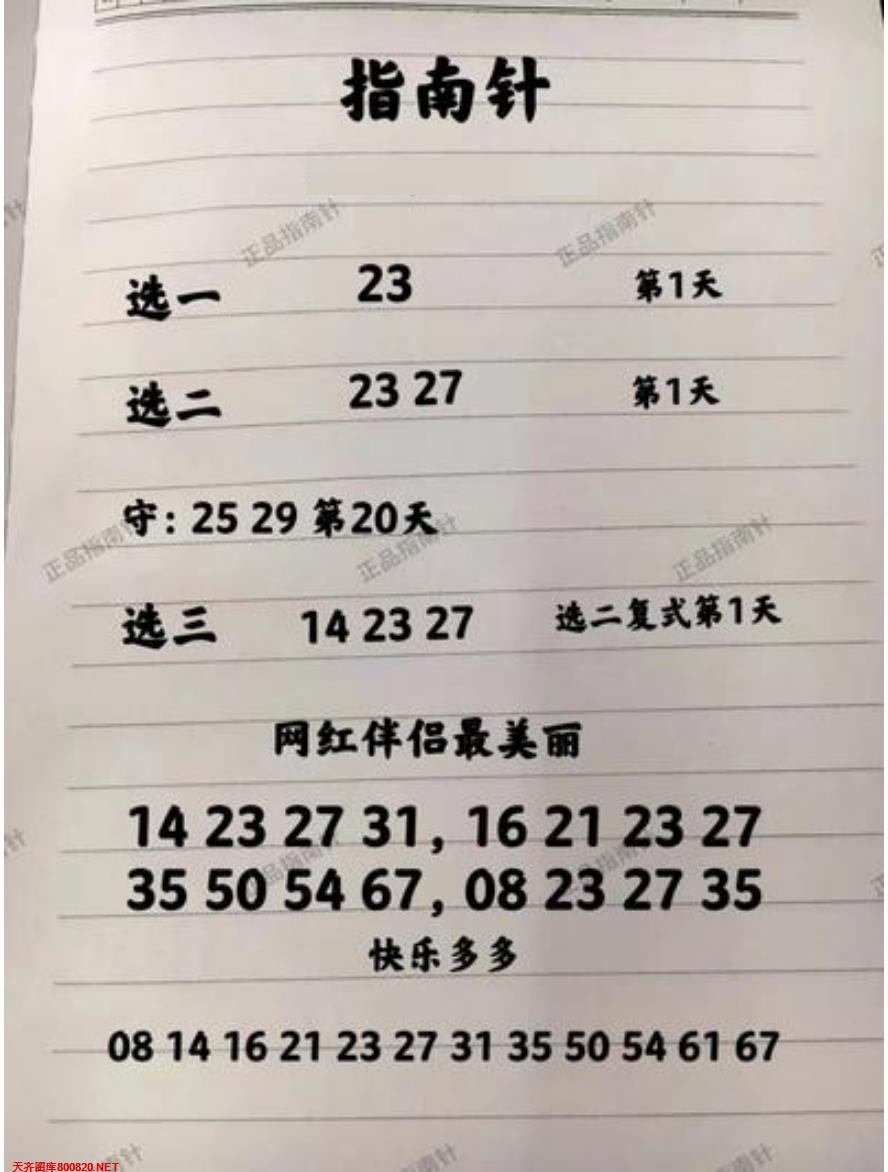 指南针
正品指南针 正品指南针
选一 23 第1天
选二 23 27 第1天
守: 25 29 第20天
正品指南针 正品指南针 正品指南针
选三 14 23 27 选二复式第1天
网红伴侣最美丽
14 23 27 31, 16 21 23 27
35 50 54 67, 08 23 27 35
快乐多多
08 14 16 21 23 27 31 35 50 54 61 67
天齐图库800820.NET